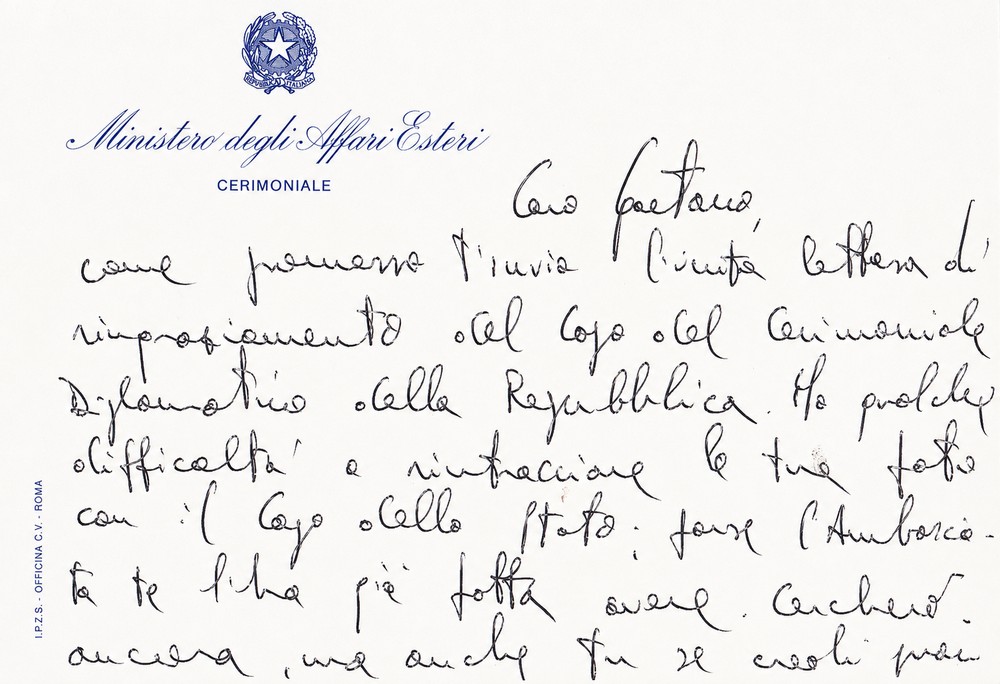 REPVBBLICA ITALIANA
Ministero degli Affari Esteri
CERIMONIALE
Caro Gaetano,
come promesso t'invio l'unita lettera di
ringraziamento del Capo del Cerimoniale
Diplomatico della Repubblica. Ho qualche
difficoltà a rintracciare la tua foto
con il Capo dello Stato; forse l'Ambascia-
ta te l'ha già fatta avere. Cercherò
ancora, ma anche tu se credi puoi
I.P.Z.S. - OFFICINA C.V. - ROMA